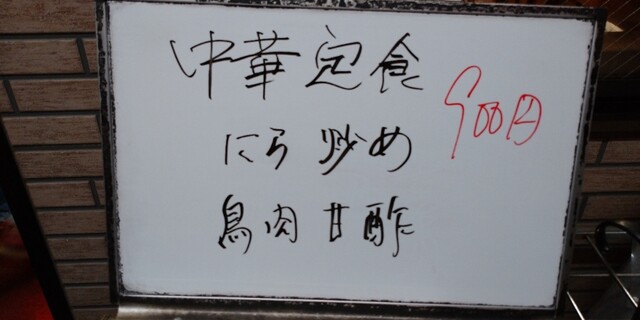 中華定食
900円
にら炒め
鳥肉甘酢